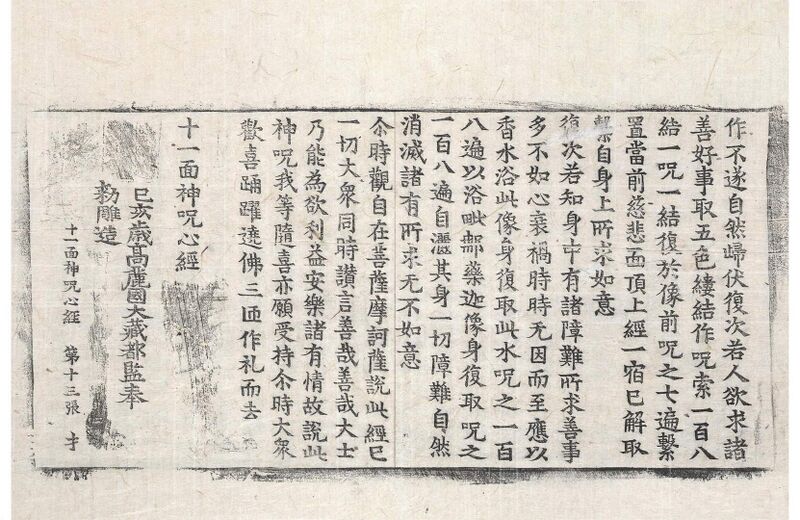 作不遂自然歸伏復次若人欲求諸
善好事取五色縷結作呪索一百八
結一呪一結復於像前呪之七遍繫
置當前慈悲面頂上經一宿已解取
繫自身上所求如意
復次若知身中有諸障難所求善事
多不如心衰禍時時无因而至應以
香水浴此像身復取此水呪之一百
八遍以浴毗那藥迦像身復取呪之
一百八遍自灑其身一切障難自然
消滅諸有所求无不如意
尒時觀自在菩薩摩訶薩說此經已
一切大衆同時讚言善哉善哉大士
乃能為欲利益安樂諸有情故說此
神呪我等隨喜亦願受持尒時大衆
歡喜踊躍遶佛三匝作礼而去
十一面神呪心經
己亥歲高麗國大藏都監奉
勅雕造
十一面神呪心經 第十三張 才